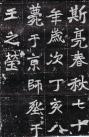 斯亮春秋七十
年歲次丁亥八
薨于京師丞于
王之塋